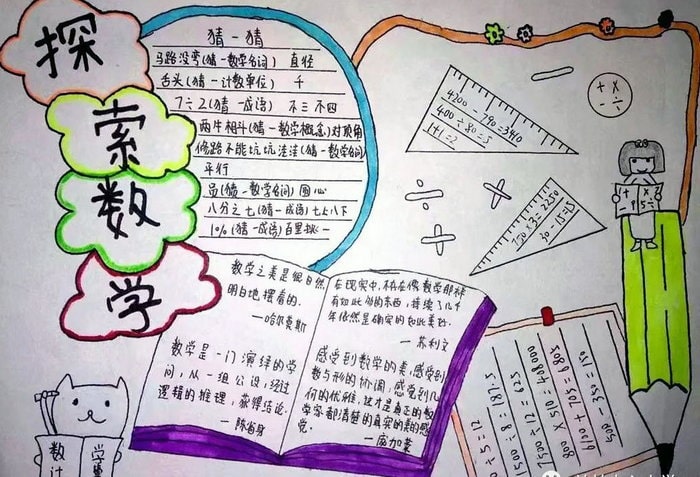 探
索
数
学
猜一猜
马路没弯(猜一数学名词) 直径
舌头(猜一计数单位) 千
7÷2(猜一成语) 不三不四
两牛相斗(猜一数学概念)对顶角
修路不能坑坑洼洼(猜一数学名词)
平行
员(猜一数学名词) 圆心
八分之七(猜一成语)七上八下
10%(猜一成语)百里挑一
数学之美是很自然
明白地摆着的.
—哈尔莫斯
数学是一门演绎的学
问,从一组公设,经过
逻辑的推理,获得结论.
—陈省身
在现实中,不存在像数学那样
有如此多的东西,持续了几千
年依然是确定的如此美好.
—苏利文
感受到数学的美,感受到
数与形的协调,感受到几
何的优雅,这才是真正的数
学家都清楚的真实的美的感
觉.
—庞加莱
4200 - 790 = 3410
400 ÷ 80 = 5
1+1=2
+ ×
- ÷
750×3=2250
30-15=15
+ ×
数
计
学
÷5=12
10500÷8
7500÷12=625
800×510=408000
6100+705=6805
500-350=150